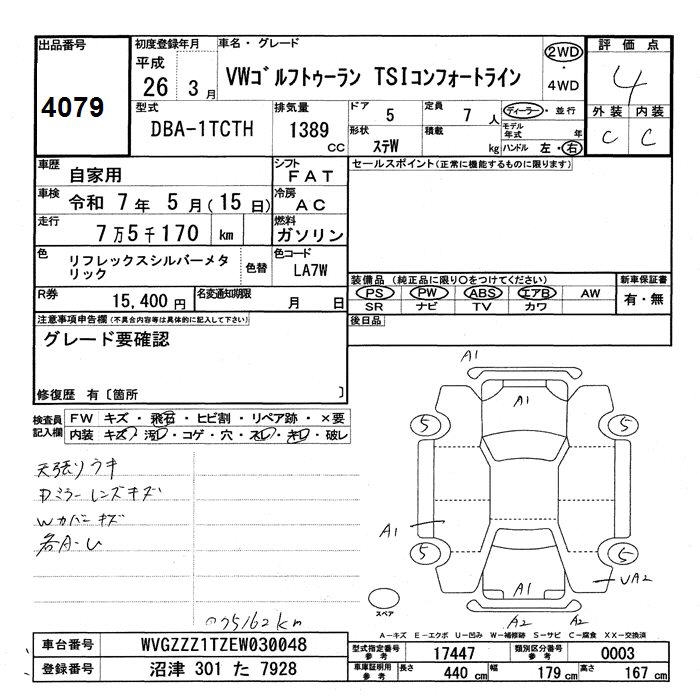 出品番号
4079
初度登録年月
平成
26 3月
車名・グレード
VWゴルフトゥーラン TSIコンフォートライン
2WD
・
4WD
評価点
4
外装 内装
C C
型式
DBA-1TCTH
排気量
1389
CC
ドア 5
定員 7 人
形状 ステW
積載 kg
ディーラー・並行
モデル年式 年
ハンドル 左・右
車歴 自家用
シフト FAT
車検 令和 7年 5月(15日)
冷房 AC
走行 7万5千170 km
燃料 ガソリン
色 リフレックスシルバーメタリック
色替
色コード LA7W
R券 15,400円
名変通知期限 月 日
セールスポイント(正常に機能するものに限ります)
装備品 (純正品に限り○をつけてください)
PS PW ABS エアB AW
SR ナビ TV カワ
新車保証書
有・無
後日品
注意事項申告欄(不具合内容等は具体的に記入して下さい)
グレード要確認
修復歴 有〔箇所 〕
検査員記入欄
FW キズ・飛石・ヒビ割・リペア跡・×要
内装 キズ・汚レ・コゲ・穴・スレ・キレ・破レ
天張りウキ
Dミラーレンズキズ
Wカバーキズ
各A・U
75162km
A1
A1
5 5
A1
5 5
A1
UA2
A2 A2
スペア
A-キズ E-エクボ U-凹み W-補修跡 S-サビ C-腐食 XX-交換済
車台番号 WVGZZZ1TZEW030048
登録番号 沼津 301 た 7928
型式指定番号 参考 17447
類別区分番号 参考 0003
車庫証明用 参考 長さ 440 cm 幅 179 cm 高さ 167 cm